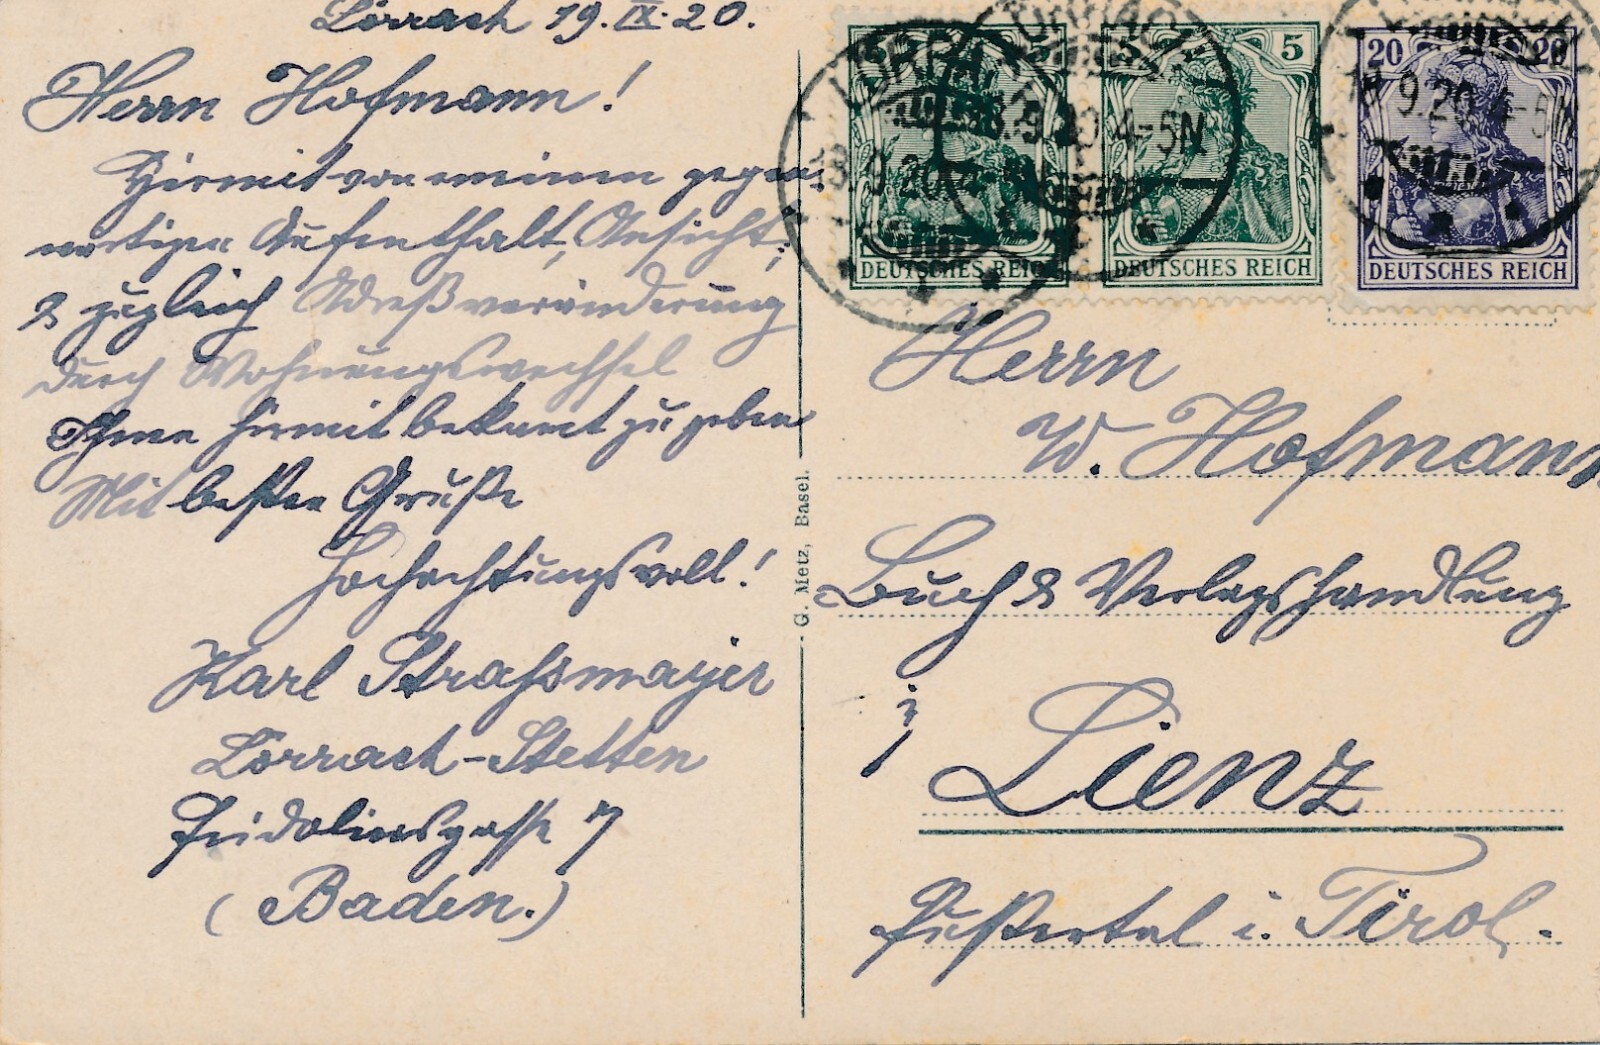 Lörrach 19. IX. 20.
Herrn Hofmann!
Hiermit von meinem gegen-
wärtigen Aufenthalt, Ansicht,
& zugleich Adreßveränderung
durch Wohnungswechsel
Ihnen hiermit bekannt zu geben
Mit besten Grüße
Hochachtungsvoll!
Karl Strassmajer
Lörrach-Stetten
Fridolinsgasse 7
(Baden.)
G. Metz, Basel.
5 5
DEUTSCHES REICH
5 5
DEUTSCHES REICH
20 20
DEUTSCHES REICH
LÖRRACH
9.20. 4-5N
Herrn
W. Hofmann
Buch & Verlagshandlung
i/
Lienz
Pustertal i. Tirol.